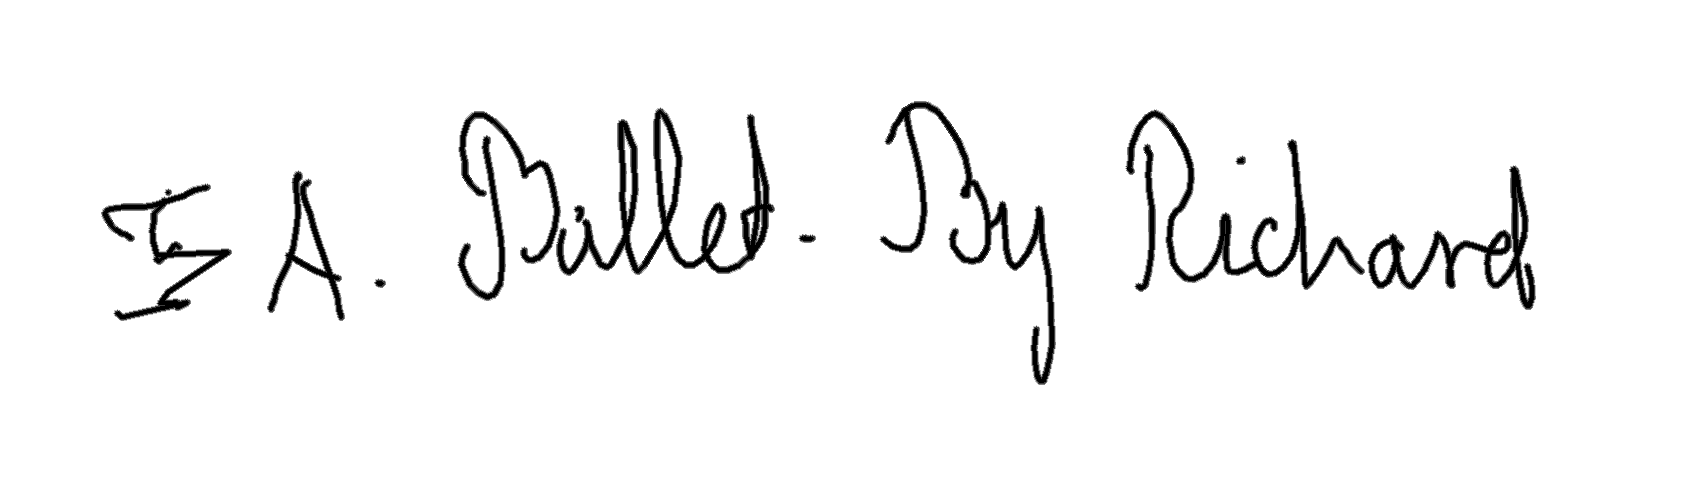 I A. Billed. By Richard